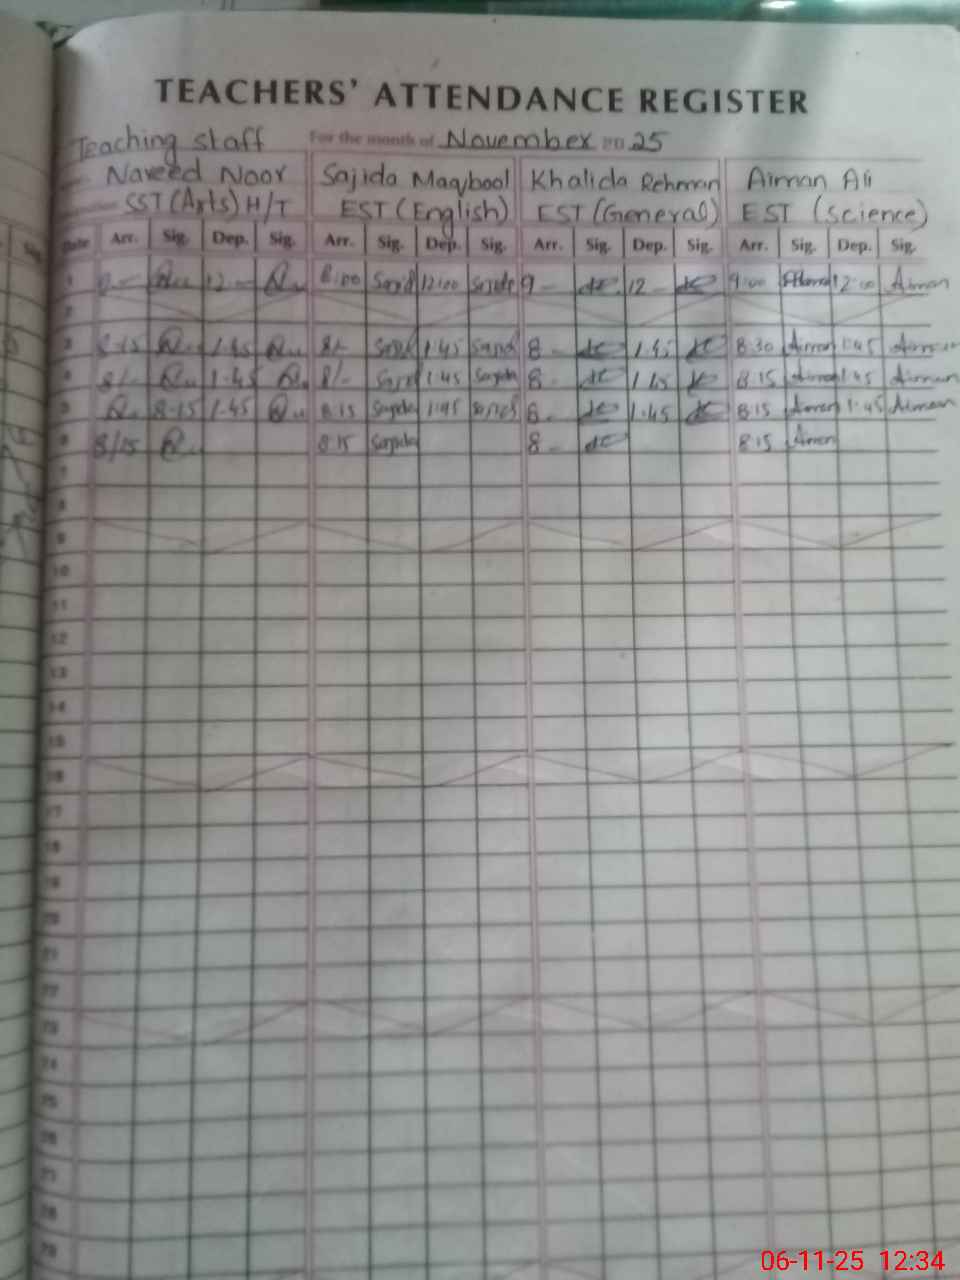 TEACHERS' ATTENDANCE REGISTER
Teaching staff For the month of November 2025
Naveed Noor Sajida Maqbool Khalida Rehman Aiman Ali
SST (Arts) H/T EST (English) EST (General) EST (Science)
Date Arr. Sig. Dep. Sig. Arr. Sig. Dep. Sig. Arr. Sig. Dep. Sig. Arr. Sig. Dep. Sig.
1 12 8:00 Sajid 12:00 Sajida 9 12 9:00 12:00 Aiman
2
3 8-15 1-45 8/- 1:45 8 1.45 8:30 Aiman 1:45 Aiman
4 8/- 1-45 8/- 1:45 Sajida 8 8:15 Aiman 1:45 Aiman
5 8-15 1-45 8:15 Sajida 1:45 8 1.45 8:15 Aiman 1:45 Aiman
6 8/15 8:15 Sajida 8 8:15 Aiman
7
8
9
10
11
12
13
14
15
16
17
18
19
20
21
22
23
24
25
26
27
28
29
06-11-25 12:34